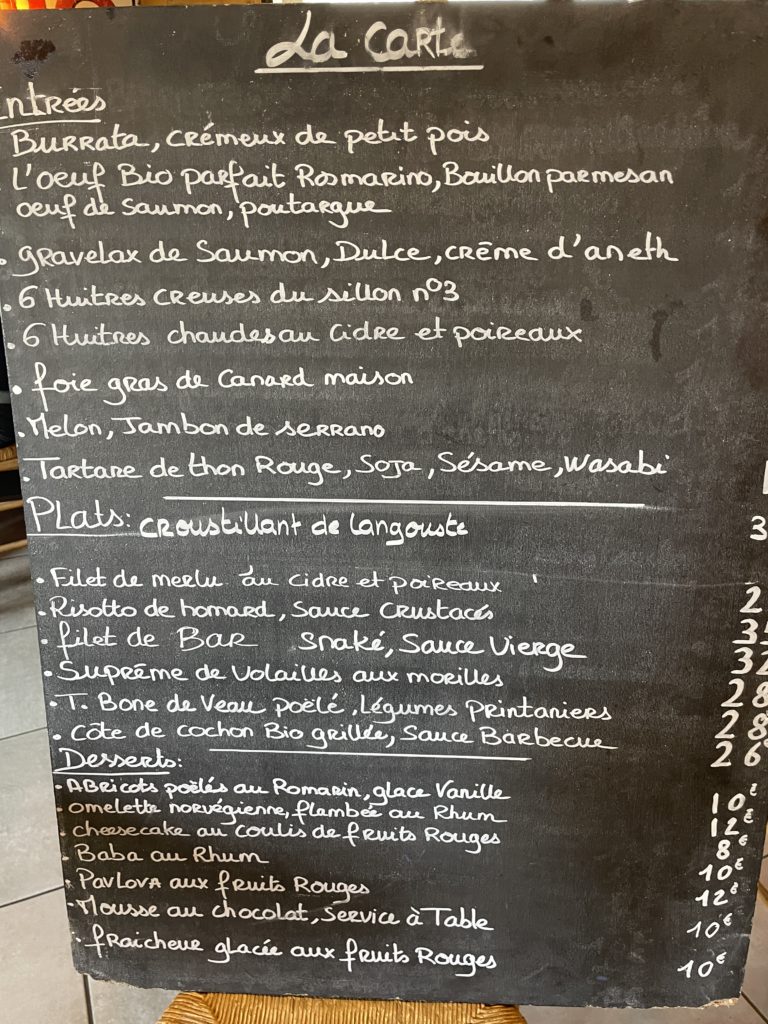 La Carte
Entrées
Burrata, crémeux de petit pois
L'oeuf Bio parfait Rosmarino, Bouillon parmesan
oeuf de Saumon, poutargue
. gravelax de Saumon, Dulce, crème d'aneth
. 6 Huitres creuses du sillon n°3
. 6 Huitres chaudes au cidre et poireaux
. foie gras de Canard maison
. Melon, Jambon de serrano
. Tartare de thon Rouge, Soja, Sésame, Wasabi
Plats: croustillant de langouste 3
. Filet de merlu au cidre et poireaux 2
. Risotto de homard, Sauce Crustacés 3
. filet de BAR snaké, Sauce Vierge 32
. Suprême de Volailles aux morilles 28
. T. Bone de Veau poêlé, Légumes printaniers 28
. côte de cochon Bio grillée, Sauce Barbecue 26
Desserts:
. Abricots poêlés au Romarin, glace Vanille 10€
. omelette norvégienne, flambée au Rhum 12€
. cheesecake au coulis de fruits Rouges 8€
. Baba au Rhum 10€
. Pavlova aux fruits Rouges 12€
. Mousse au chocolat, Service à Table 10€
. fraicheur glacée aux fruits Rouges 10€